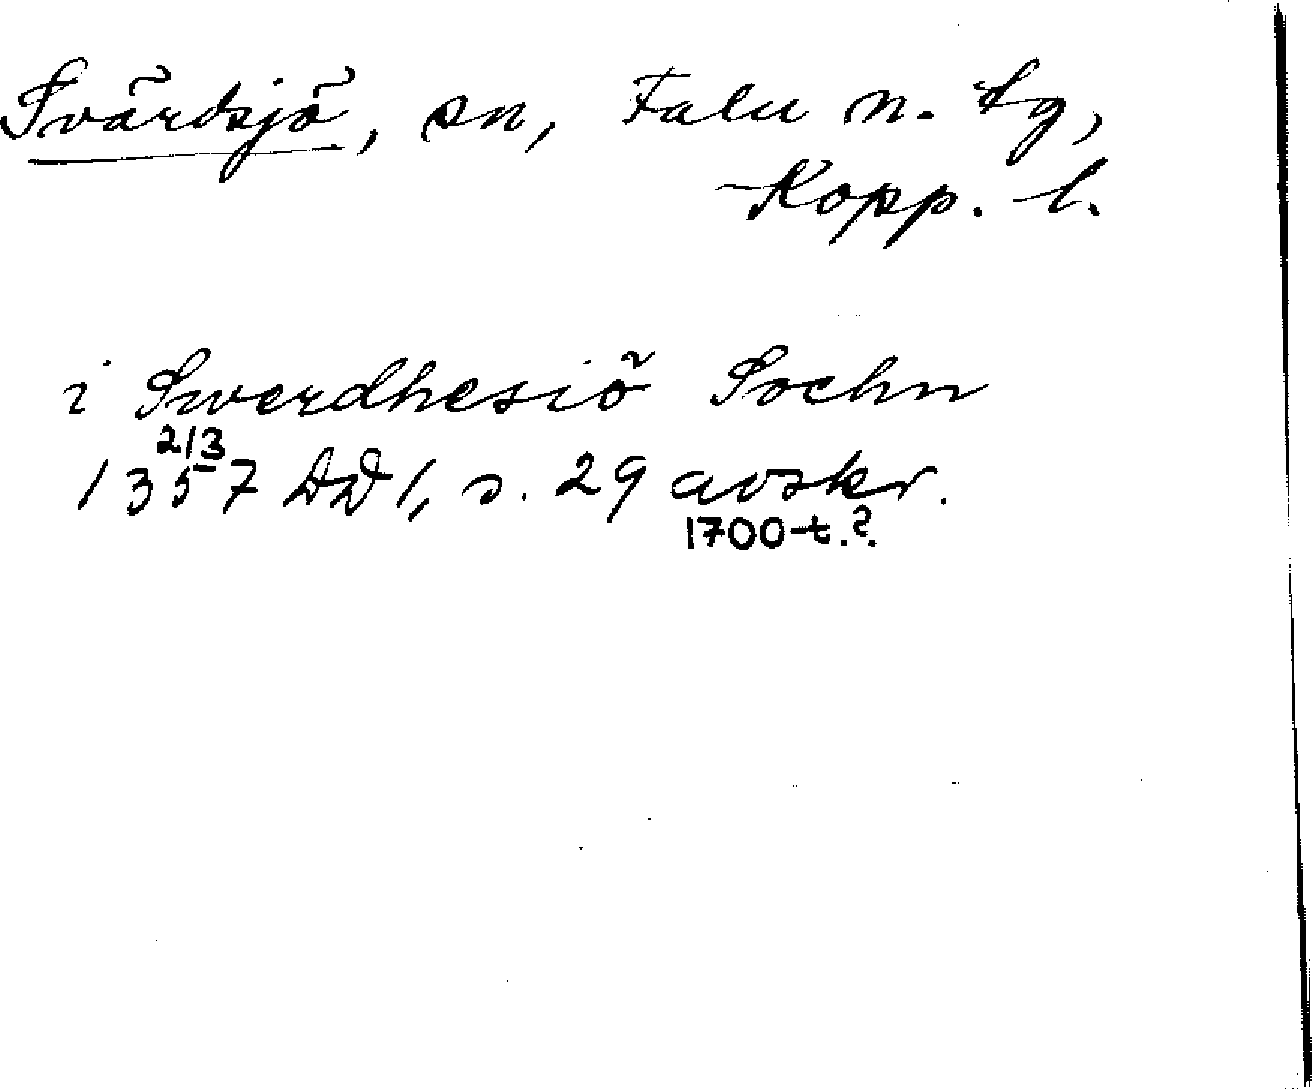 Svärdsjö, sn, Falu n. tg,
Kopp. l.
i Swerdhesiö Sochn
2/3
1357 DD 1, s. 29 avskr.
1700-t.?